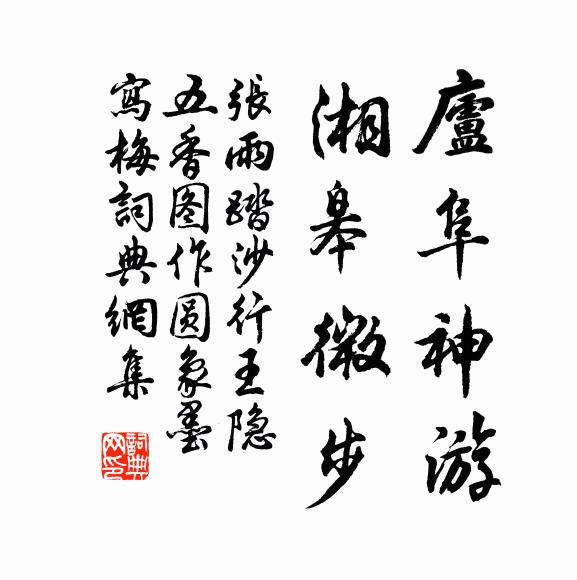 廬阜神游
湘皋微步
張雨踏沙行王隐
五香图作圆象墨
寫梅詞典網集
詞典网印